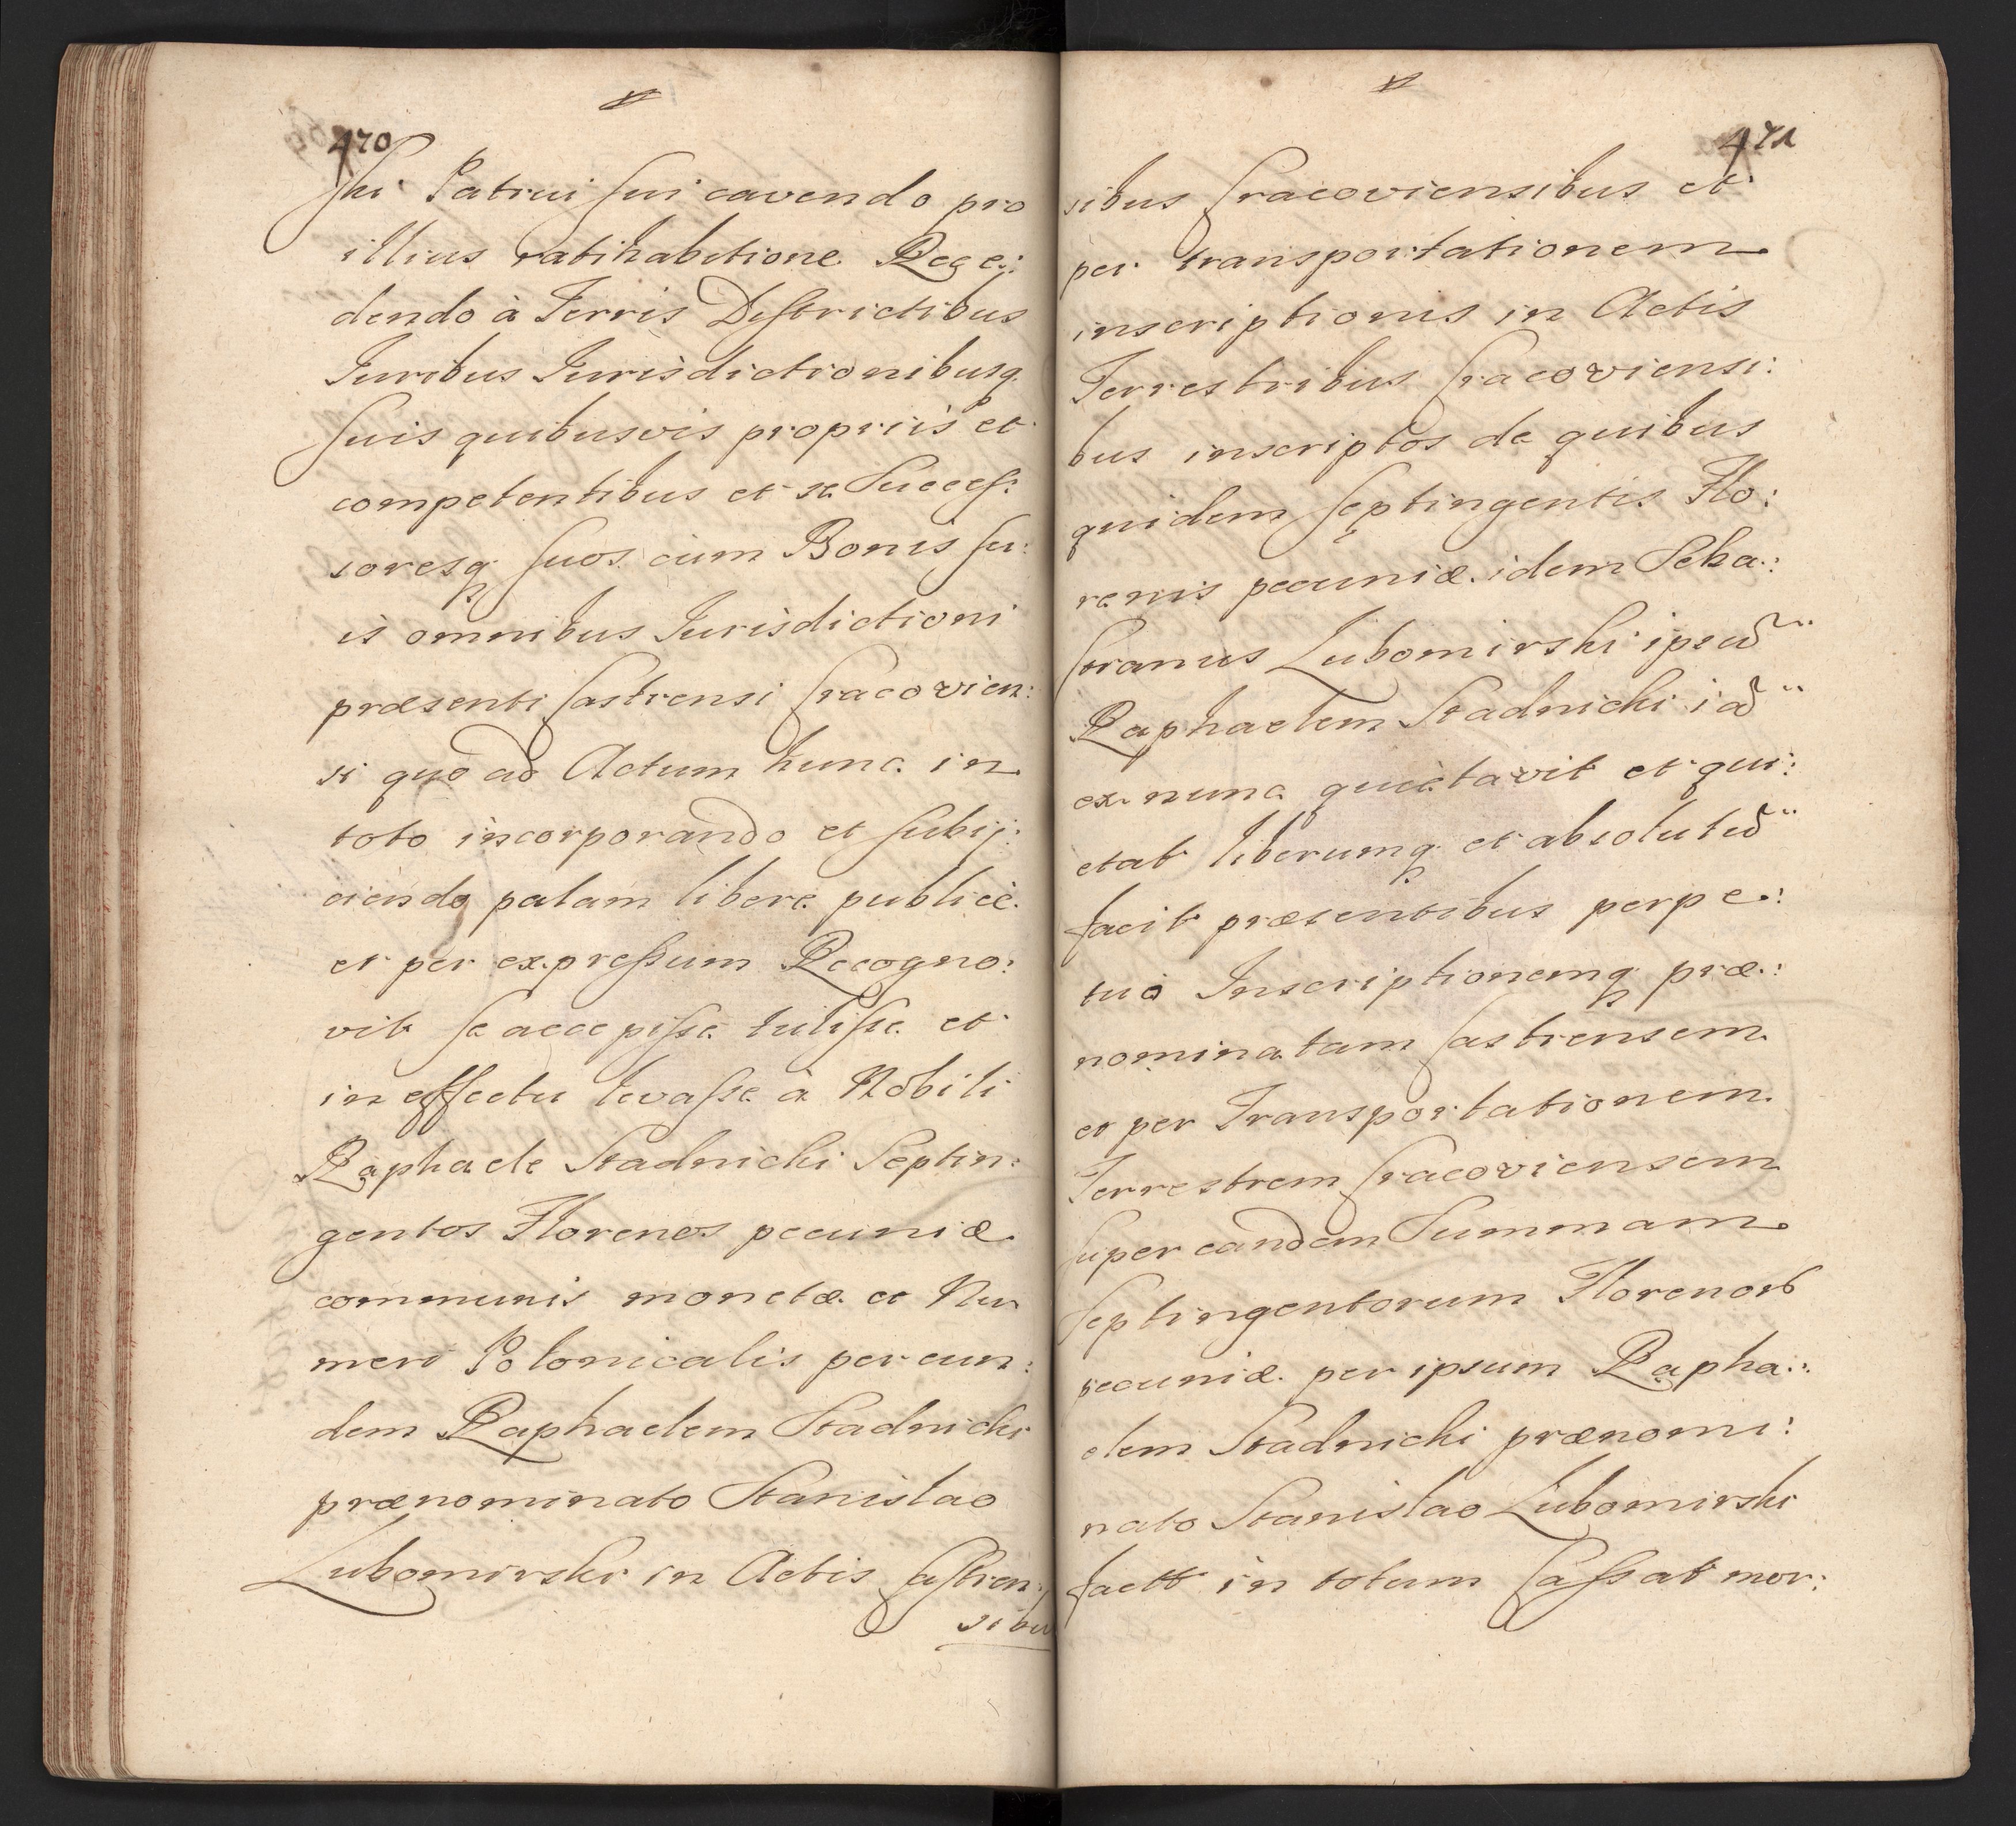 470
ski Patrui sui cavendo pro
illius ratihabitione Rece:
dendo à Terris Districtibus
Iuribus Iurisdictionibusq
suis quibusvis propriis et
competentibus et se Succes:
soresq suos cum Bonis su:
is omnibus Iurisdictioni
præsenti Castrensi Cracovien:
si quo ad Actum hunc in
toto incorporando et subij:
ciendo palam libere publicè
et per expressum Recogno:
vit se accepisse tulisse et
in effectu levasse à Nobili
Raphaele Stadnicki Septin:
gentos Florenos pecuniæ
communis monetæ et Nu
meri Polonicalis per eun:
dem Raphaelem Stadnicki
prænominato Stanislao
Lubomirski in Actis Castren:
sibu
471
sibus Cracoviensibus et
per transportationem
inscriptionis in Actis
Terrestribus Cracoviensi:
bus inscriptos de quibus
quidem septingentis Flo:
renis pecuniæ idem
Lubomirski
Raphaelem Stadnicki
ex nunc quietavit et qui:
etat liberumq et absolutũ
facit præsentibus perpe:
tuò Inscriptionemq præ:
nominatam Castrensem
et per Transportationem
Terrestrem Cracoviensem
super eandem Summam
septingentorum Florenor
pecuniæ per ipsum Rapha:
elem Stadnicki prænomi:
nato Stanislao Lubomirski
in totum Cassat mor: